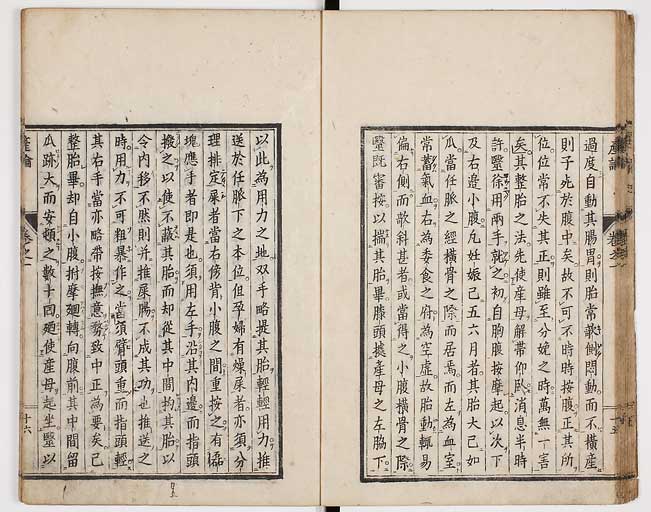 過度自動其腸胃則胎常欹側悶動而不橫產
則子死於腹中矣故不可不時時按腹正其所
位位常不失其正則雖至分娩之時萬無一害
矣其整胎之法先使產母解帶仰臥消息半時
許毉徐用兩手就之初自胸腹按摩起以次下
及右邊小腹凡妊娠已五六月者其胎大已如
瓜當任脈之經橫骨之際而居焉而左為血室
常蓄氣血右為委食之府為空虛故胎動輒易
偏右側而欹斜甚者或當得之小腹橫骨之際
毉既審按以揣其胎畢膝頭據產母之左脇下
以此為用力之地双手略提其胎輕輕用力推
送於任脈下之本位但孕婦有燥屎者亦須分
理排定屎者當右傍背小腹之間重按之有磊
塊應手者即是也須用左手沿其內邊而指頭
撥之以使不蔽其胎而却從其中間抅其胎以
令內移不然則并推屎膓不成其功也推送之
時用力不可粗暴作之當須臂頭重而指頭輕
其右手當亦略帶按撫意務致中正為要矣已
整胎畢却自小腹拊摩廻轉向腹前其中間留
瓜跡大而安頓之數十回廼使產母起坐毉以
產論
卷之一
十六